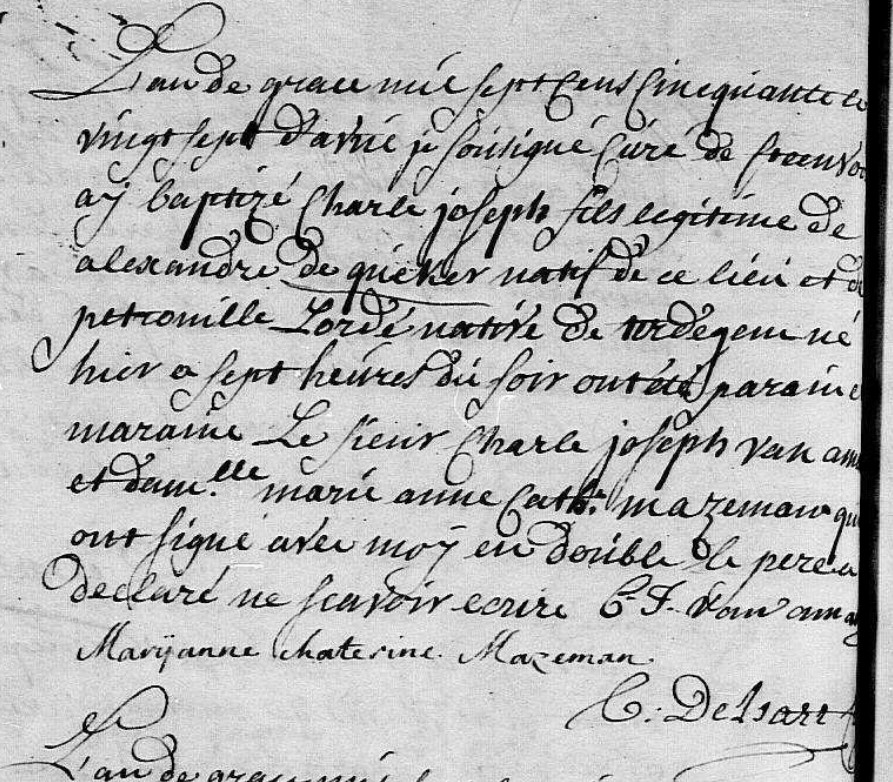 L'an de grace mil sept Cens Cincquante le
vingt sept d'avril je soûsigné Curé de steenvoo
aÿ baptizé Charle joseph fils legitime de
alexandre de quieker natif de ce liéu et de
petronille Lordé nativé de terdegem né
hier a sept heúres dú soir ont été parain e
maraine Le sieur Charle joseph van am
et dam.lle marie anne Cath: mazeman qui
ont signé avec moÿ en doúble le pere a
declaré ne scavoir ecrire C. J. van am
Marÿanne chaterine Mazeman
C. Delsart
L'an de grace mil